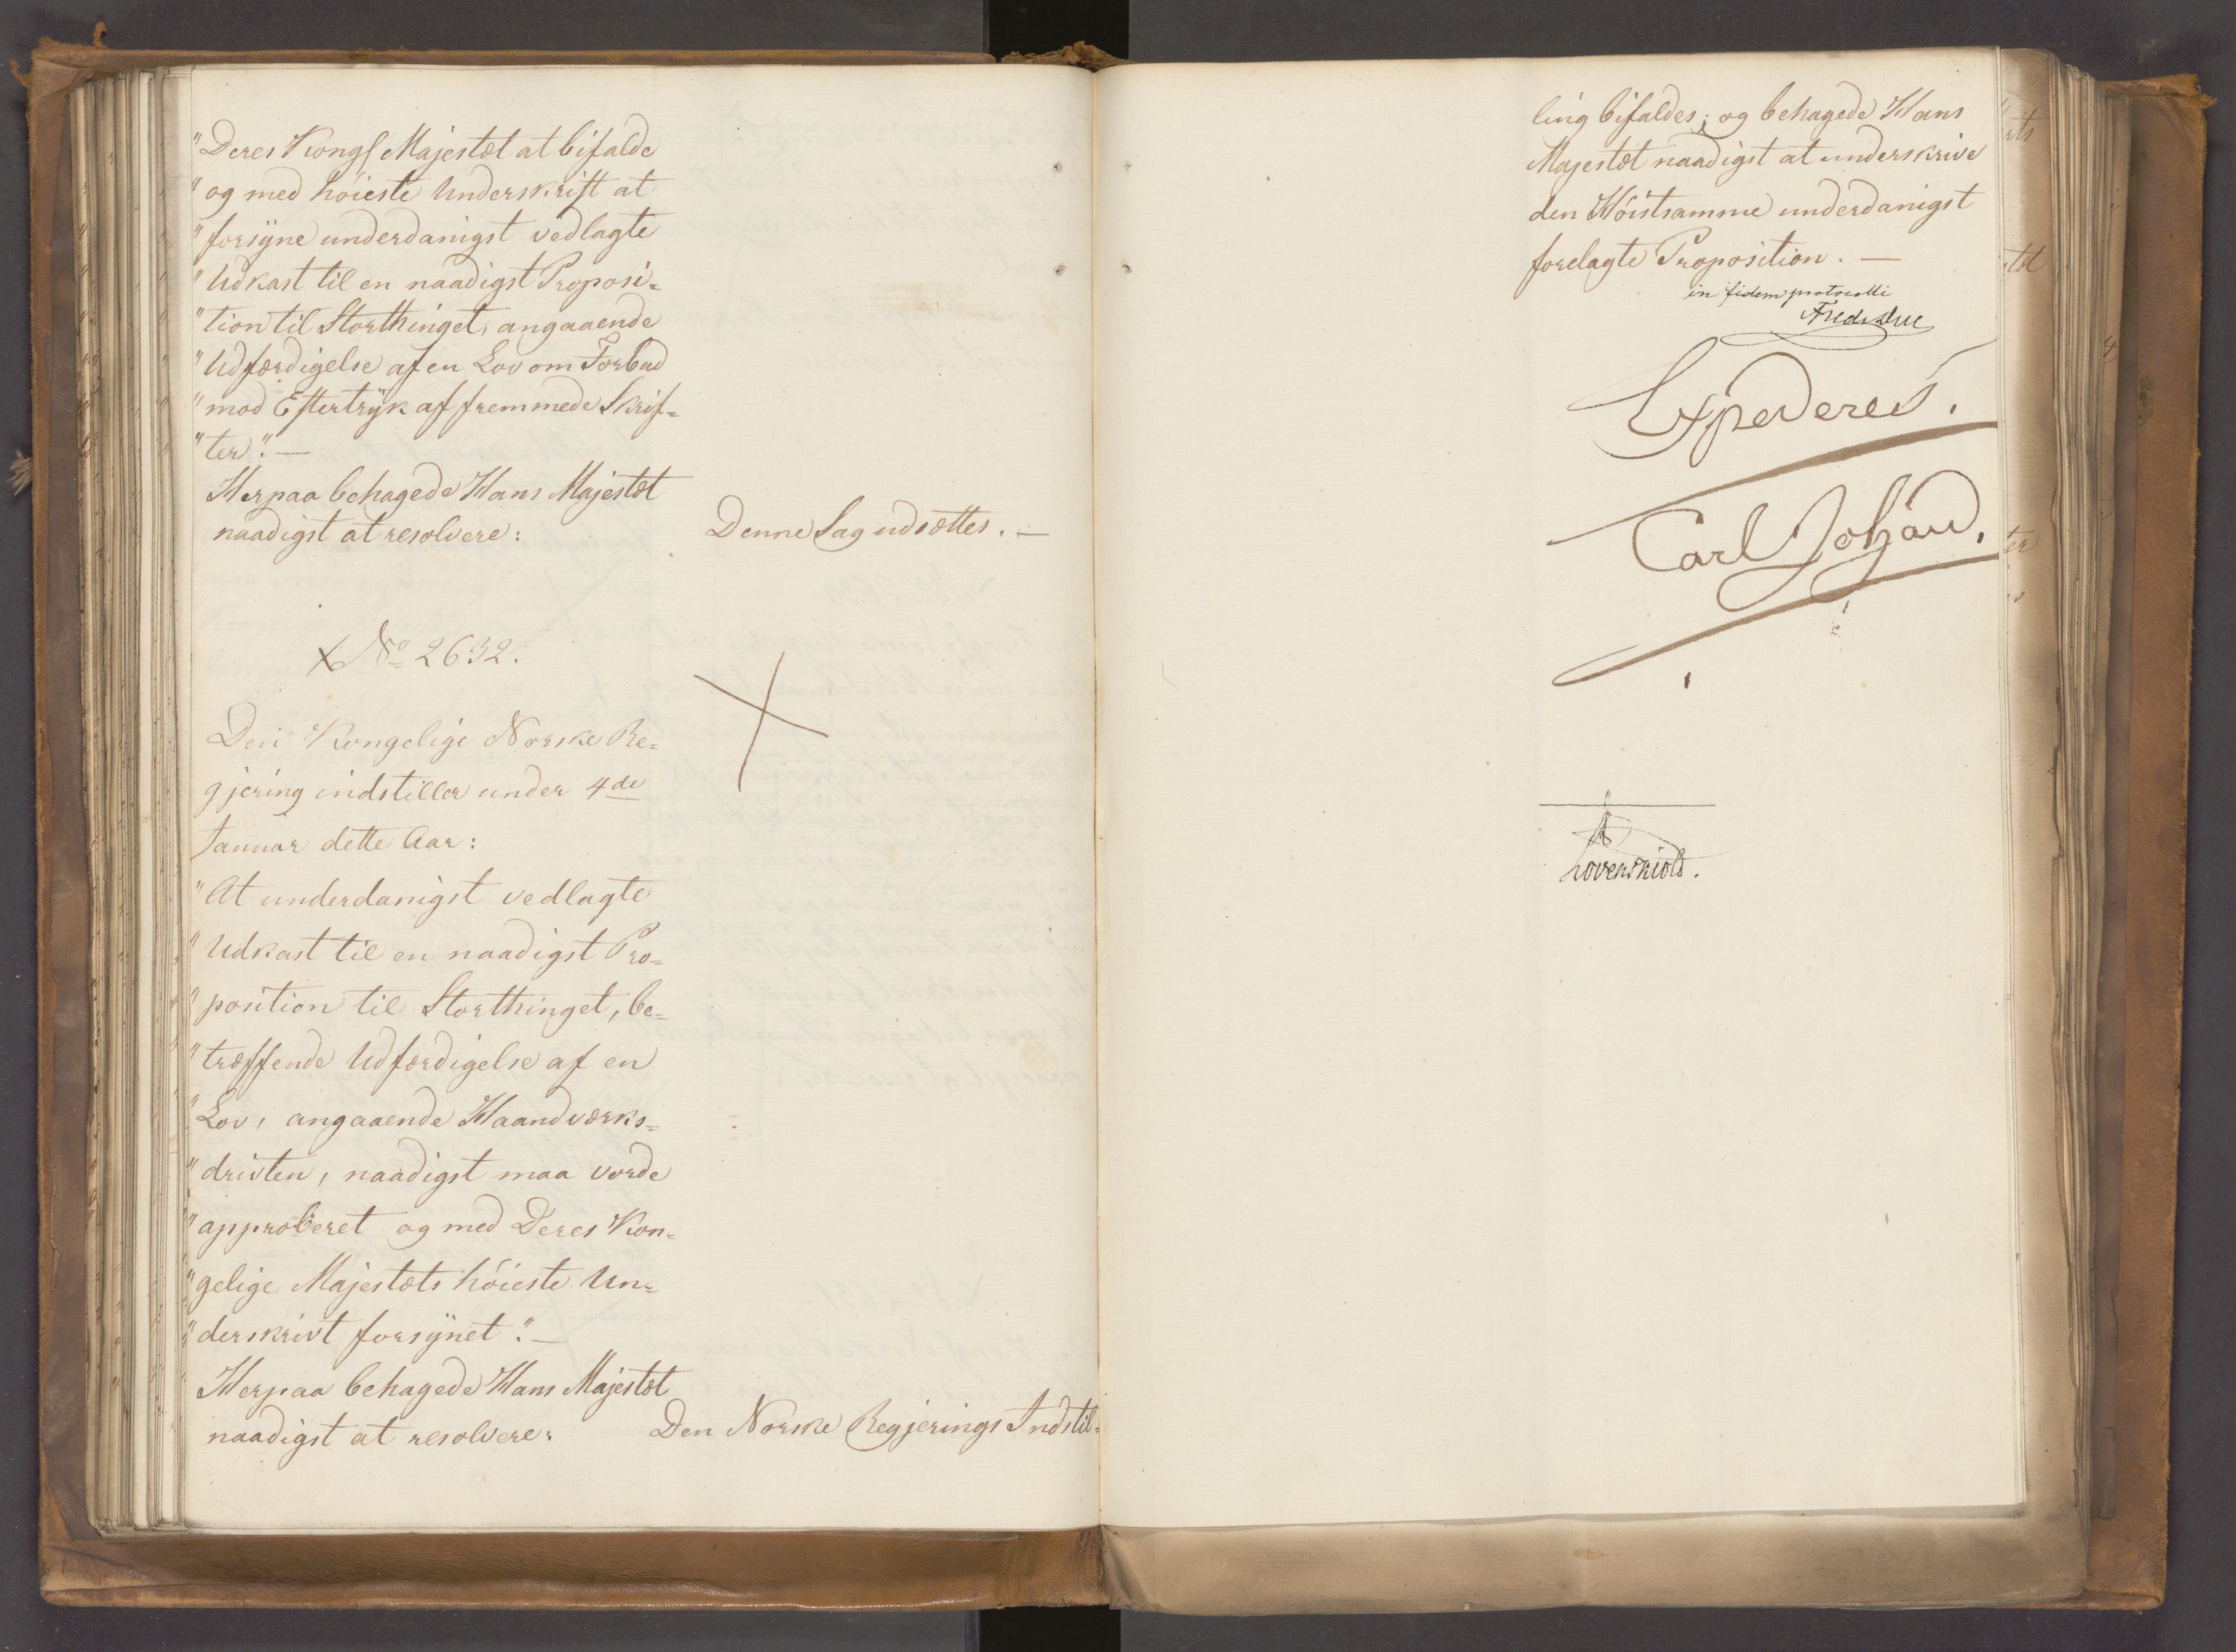 "Deres Kongl Majestæt at bifalde
"og med höieste Underskrift at
"forsÿne underdanigst vedlagte
"Udkast til en naadigst Proposi=
"tion til Storthinget, angaaende
"Udfærdigelse af en Lov om Forbud
"mod Eftertrÿk af fremmede Skrif=
"ter". —
Herpaa behagede Hans Majestæt
naadigst at resolvere:
Denne Sag udsættes. —
No 2632.
Den Kongelige Norske Re=
gjering indstiller under 4de
Januar dette Aar:
"At underdanigst vedlagte
"Udkast til en naadigst Pro=
"position til Storthinget, be=
"træffende Udfærdigelse af en
"Lov, angaaende Haandværks=
"driften, naadigst maa vorde
"approberet og med Deres Kon=
"gelige Majestæts höieste Un=
"derskrivt forsÿnet". —
Herpaa behagede Hans Majestæt
naadigst at resolvere:
Den Norske Regjerings Indstil=
ling bifaldes; og behagede Hans
Majestæt naadigst at underskrive
den Höistsamme underdanigst
forelagte Proposition. —
in fidem protocolli
Fredr Due
Expederes.
Carl Johan.
Løvenskiold.